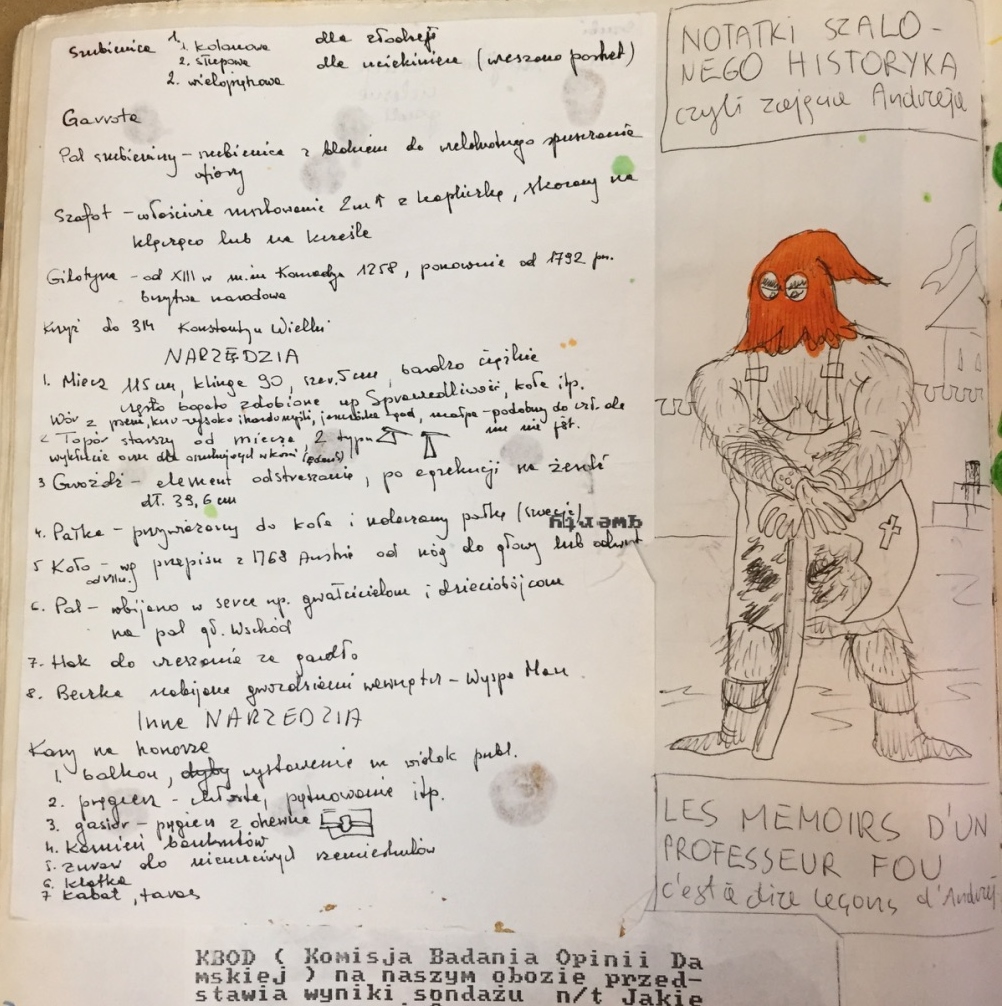 Szubienica 1. 1. kolanowa dla złodzieji
2. słupowa dla uciekiniera (wieszano portret)
2. wielojęzykowa
Garrota
Pal szubieniczny – szubienica z blokiem do wielokrotnego spuszczania
ofiary
Szafot – właściwie murowane 2m ↑ z kapliczką, skazany na
klęcząco lub na krześle
Gilotyna – od XIII w m.in 1258, ponownie od 1792
brzytwa narodowa
Krzyż do 314 Konstantyn Wielki
NARZĘDZIA
1. Miecz 115 cm, klinga 90, szer. 5 cm, bardzo ciężkie
często bogato zdobione np Sprawiedliwość, koła itp.
Wór z małpa – podobny do ale
nie jest.
2. Topór starszy od miecza, 2 typy
wyklucie oczu dla
3 Gwoźdź – element odstraszania, po egzekucji na żerdź
dł. 39,6 cm
4. Pałka – przywiązany do koła i pałką
5 Koło – wg przepisu z 1768 Austria od nóg do głowy lub odwrot
6. Pal – wbijano w serce np. gwałcicielom i dzieciobójcom
na pal gł. Wschód
7. Hak do wieszania za gardło
8. Beczka nabijana gwoździami wewnątrz – Wyspa Man
Inne NARZEDZIA
Kary na honorze
1. balkon, dyby wystawienie na widok publ.
2. pręgierz – chłosta, piętnowanie itp.
3. gąsior – pręgierz z drewna
4. kamień bankrutów
5. żuraw do nieuczciwych rzemieślników
6. klatka
7 kabat, taras
NOTATKI SZALO-
NEGO HISTORYKA
czyli zajęcia Andrzeja
LES MEMOIRS D'UN
PROFESSEUR FOU
c'est à dire leçons d'Andrzej
KBOD ( Komisja Badania Opinii Da
mskiej ) na naszym obozie przed-
stawia wyniki sondażu n/t Jakie